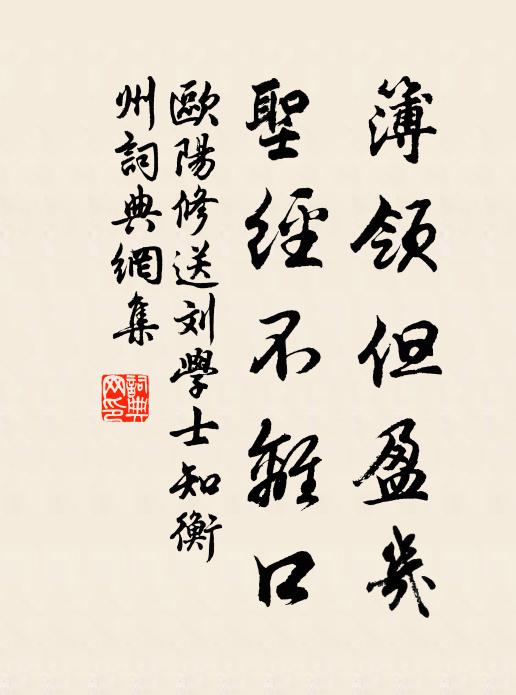 簿領但盈幾
聖經不離口
歐陽修送刘學士知衡
州詞典網集
詞典
网印